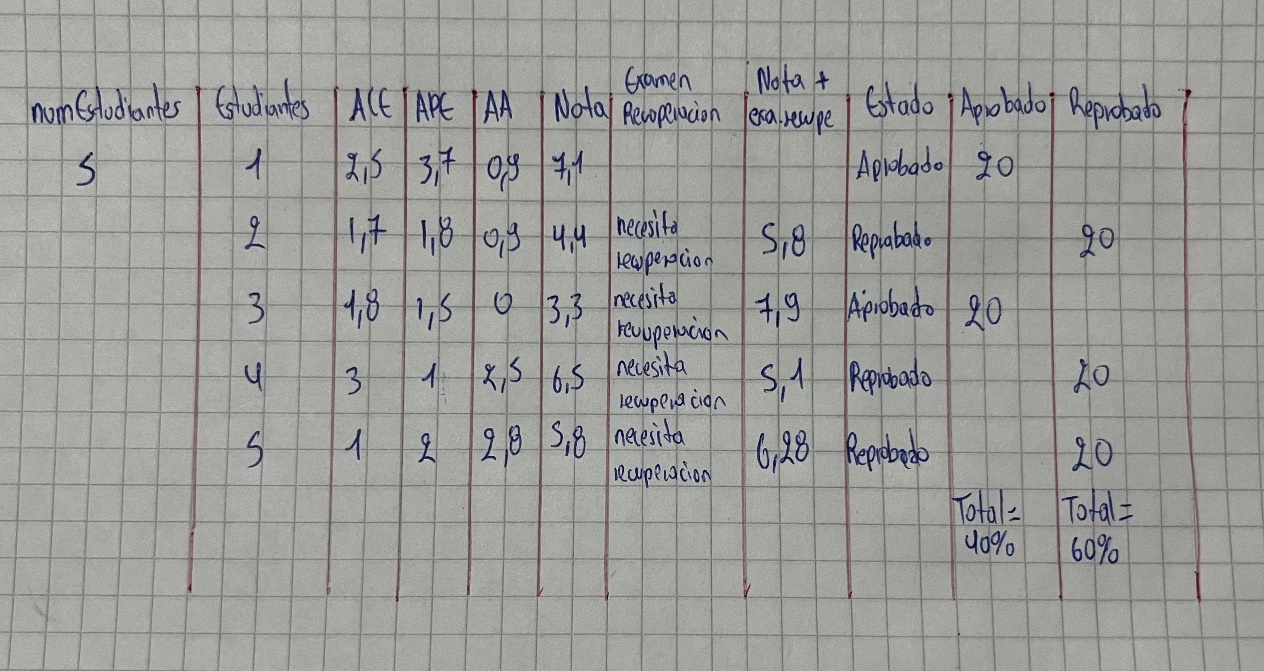 numEstudiantes Estudiantes ACE APE AA Nota Examen Recuperacion Nota + exa.recupe Estado Aprobado Reprobado
5 1 2,5 3,7 0,9 7,1 Aprobado 20
2 1,7 1,8 0,9 4,4 necesita recuperacion 5,8 Reprobado 20
3 1,8 1,5 0 3,3 necesita recuperacion 7,9 Aprobado 20
4 3 1 2,5 6,5 necesita recuperacion 5,1 Reprobado 20
5 1 2 2,8 5,8 necesita recuperacion 6,28 Reprobado 20
Total= 40% Total= 60%